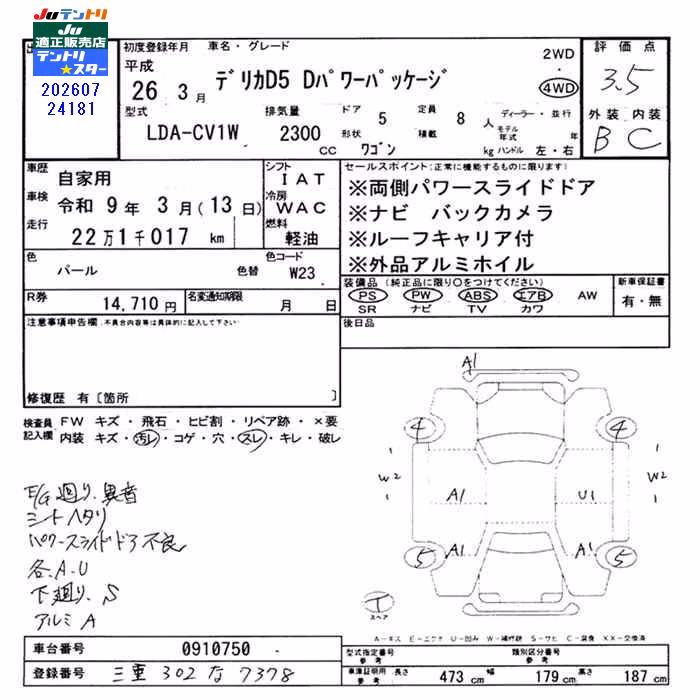 JUテントリ
JU
適正販売店
テントリ
★スター
202607
24181
初度登録年月 車名・グレード
平成
26 3月
デリカD5 Dパワーパッケージ
2WD
・
4WD
評価点
3.5
外装 内装
B C
型式
LDA-CV1W
排気量
2300 CC
ドア 5
形状 ワゴン
定員 8 人
積載 kg
ディーラー・並行
モデル年式 年
ハンドル 左・右
車歴 自家用
車検 令和 9年 3月(13日)
走行 22万1千017 km
シフト
IAT
冷房
WAC
燃料
軽油
セールスポイント(正常に機能するものに限ります)
※両側パワースライドドア
※ナビ バックカメラ
※ルーフキャリア付
※外品アルミホイル
色 パール 色替
色コード W23
装備品(純正品に限り○をつけてください)
PS PW ABS エアB AW
SR ナビ TV カワ
新車保証書
有・無
R券 14,710円
名変通知期限 月 日
後日品
注意事項申告欄.不具合内容等は具体的に記入して下さい
修復歴 有〔箇所 〕
検査員
記入欄
FW キズ・飛石・ヒビ割・リペア跡・×要
内装 キズ・汚レ・コゲ・穴・スレ・キレ・破レ
E/G廻り.異音
シートヘタリ
パワースライドドア不良
各.A.U
下廻り.S
アルミA
A1
4 4
W2 W2
A1 U1
A1 A1
5 5
T
スペア
A-キズ E-エクボ U-凹み W-補修跡 S-サビ C-腐食 XX-交換済
車台番号 0910750
登録番号 三重 302 な 7378
型式指定番号
参考
類別区分番号
参考
車庫証明用
参考
長さ 473 cm 幅 179 cm 高さ 187 cm